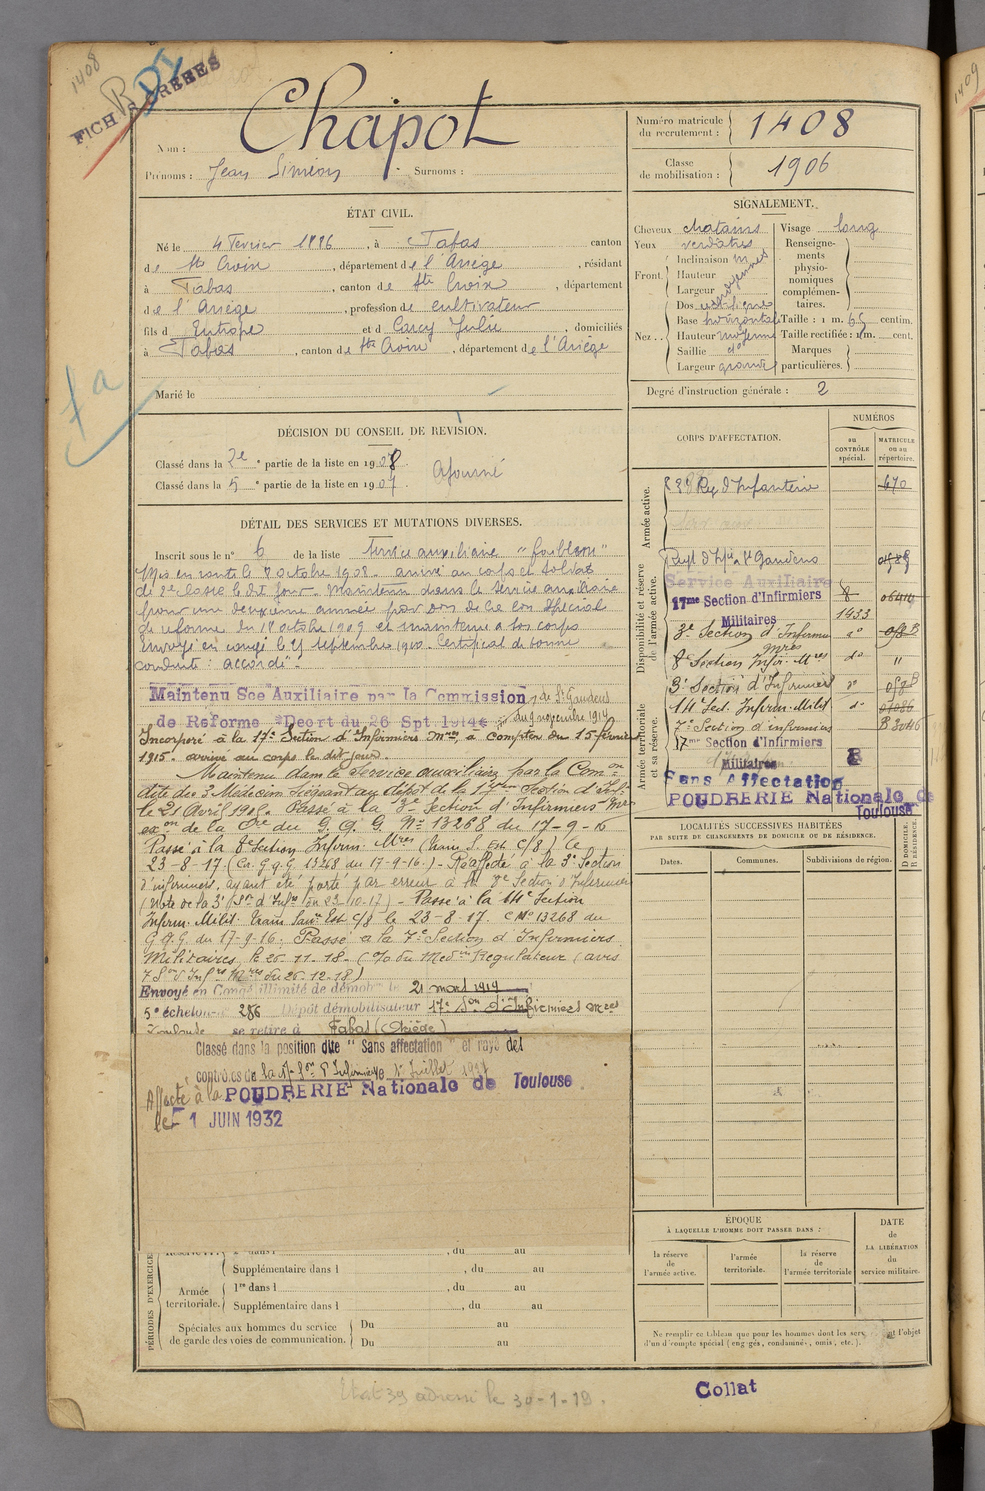 1408
FICH
Nom : Chapot
Prénoms : Jean Siméon Surnoms :
ÉTAT CIVIL.
Né le 4 Fevrier 1886, à Fabas canton
de Ste Croix, département de l'Ariège, résidant
à Fabas, canton de Ste Croix, département
de l'Ariège, profession de cultivateur
fils d' Eutrope et d Carcy Julie, domiciliés
à Fabas, canton de Ste Croix, département de l'Ariège
Marié le
DÉCISION DU CONSEIL DE RÉVISION.
Classé dans la 2e partie de la liste en 1908.
Classé dans la 5e partie de la liste en 1907.
Ajourné
DÉTAIL DES SERVICES ET MUTATIONS DIVERSES.
Inscrit sous le n° 6 de la liste Service auxiliaire "faiblesse"
Mis en route le 8 octobre 1908. arrivé au corps et soldat
de 2e classe le dit jour. Maintenu dans le service auxiliaire
pour une deuxième année par don de la Con spécial
de réforme du 18 octobre 1909 et maintenu à son corps
Envoyé en congé le 25 septembre 1910. Certificat de bonne
conduite : "accordé".
Maintenu Sce Auxiliaire par la Commission de St Gaudens
de Reforme Décrt du 26 Spt. 1914 du 9 novembre 1914
Incorporé à la 17e Section d'Infirmiers Mres, à compter du 15 février
1915. arrivé au corps le dit jour.
Maintenu dans le Service auxiliaire par la Comon
dite des 3 Médecins siégeant au dépôt de la 17me Section d'Inf.
le 21 Avril 1916. Passé à la 3e Section d'Infirmiers Mres
exon de la Cre du G.Q.G. No 13268 du 17-9-16
Passé à la 8e Section Infirm. Mres (train S. Est C/8) le
23-8-17 (Ca. G.Q.G 13268 du 17-9-16.) - Réaffecté à la 3e Section
d'infirmiers, ayant été porté par erreur à la 8e Section d'Infirmiers
(Note de la 3e Son d'Infrs du 23-10-17) - Passé à la 14e Section
Infirm. Milit. train Sanre Est C/8 le 23-8-17. C No 13268 du
G.Q.G. du 17-9-16. Passé à la 7e Section d'Infirmiers
Militaires, le 26-11-18. (O/ du Medin Regulateur (avis
7 Son d'Infrs Mres du 26-12-18)
Envoyé en Congé illimité de démob le 21 mars 1919
5e échelon 286 Dépôt démobilisateur 17e Son d'Infirmiers Mres
Toulouse se retire à Fabas (Ariège)
Classé dans la position dite "Sans affectation" et rayé des
contrôles de la 17e Son d'Infirmiers
Affecté à la POUDRERIE Nationale de Toulouse
le 1 JUIN 1932
PÉRIODES D'EXERCICE
Supplémentaire dans l , du au
Armée territoriale. 1re dans l , du au
Supplémentaire dans l , du au
Spéciales aux hommes du service de garde des voies de communication. Du au
Du au
Etat 39 adressé le 30-1-19.
Numéro matricule du recrutement : 1408
Classe de mobilisation : 1906
SIGNALEMENT.
Cheveux chatains Visage long
Yeux verdâtres
Front. Inclinaison moyennes
Hauteur
Largeur
Renseignements physionomiques complémentaires.
Nez Dos rectiligne
Base horizontale Taille : 1 m. 65 centim.
Hauteur moyenne Taille rectifiée : 1 m. cent.
Saillie do Marques particulières.
Largeur grande
Degré d'instruction générale : 2
CORPS D'AFFECTATION.
NUMÉROS
au CONTRÔLE spécial.
MATRICULE ou au répertoire.
Armée active.
Reg d'Infanterie 670
Disponibilité et réserve de l'armée active.
Regt d'Inf. St Gaudens
Service Auxiliaire
17me Section d'Infirmiers 8
Militaires 1433
3e Section d'Infirm Mres do
8e Section Infir. Mres do "
3e Section d'Infirmiers do
Armée territoriale et sa réserve.
14 Sect. Infirm. Milit do
7e Section d'infirmiers B 3046
17me Section d'Infirmiers
Militaires
Sans Affectation
POUDRERIE Nationale de
Toulouse
LOCALITÉS SUCCESSIVES HABITÉES
PAR SUITE DE CHANGEMENTS DE DOMICILE OU DE RÉSIDENCE.
D DOMICILE. R RÉSIDENCE.
Dates. Communes. Subdivisions de région.
ÉPOQUE
À LAQUELLE L'HOMME DOIT PASSER DANS :
DATE
de
LA LIBÉRATION
du
service militaire.
la réserve de l'armée active.
l'armée territoriale.
la réserve de l'armée territoriale
Ne remplir ce tableau que pour les hommes dont les serv nt l'objet
d'un décompte spécial (engagés, condamnés, omis, etc.).
Collat
1409